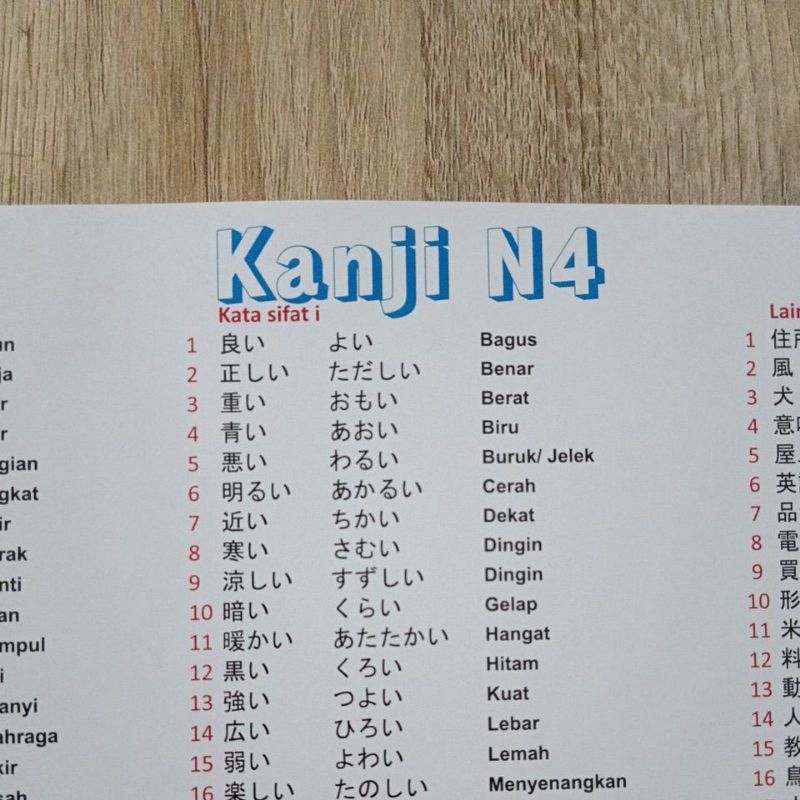 Kanji N4
Kata sifat i
1 良い よい Bagus
2 正しい ただしい Benar
3 重い おもい Berat
4 青い あおい Biru
5 悪い わるい Buruk/ Jelek
6 明るい あかるい Cerah
7 近い ちかい Dekat
8 寒い さむい Dingin
9 涼しい すずしい Dingin
10 暗い くらい Gelap
11 暖かい あたたかい Hangat
12 黒い くろい Hitam
13 強い つよい Kuat
14 広い ひろい Lebar
15 弱い よわい Lemah
16 楽しい たのしい Menyenangkan
1 住
2 風
3 犬
4 意
5 屋
6 英
7 品
8 電
9 買
10 形
11 米
12 料
13 動
14 人
15 教
16 鳥